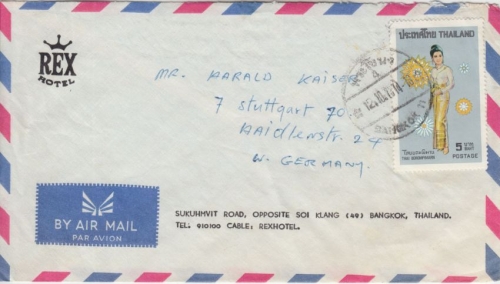 REX
HOTEL
ประเทศไทย THAILAND
MR. HARALD KAISER
7 Stuttgart 70
Haidlenstr. 24
W. GERMANY
5 บาท
BAHT
POSTAGE
BANGKOK
BY AIR MAIL
PAR AVION
SUKUHMVIT ROAD, OPPOSITE SOI KLANG (49) BANGKOK, THAILAND.
TEL: 910100 CABLE: REXHOTEL.